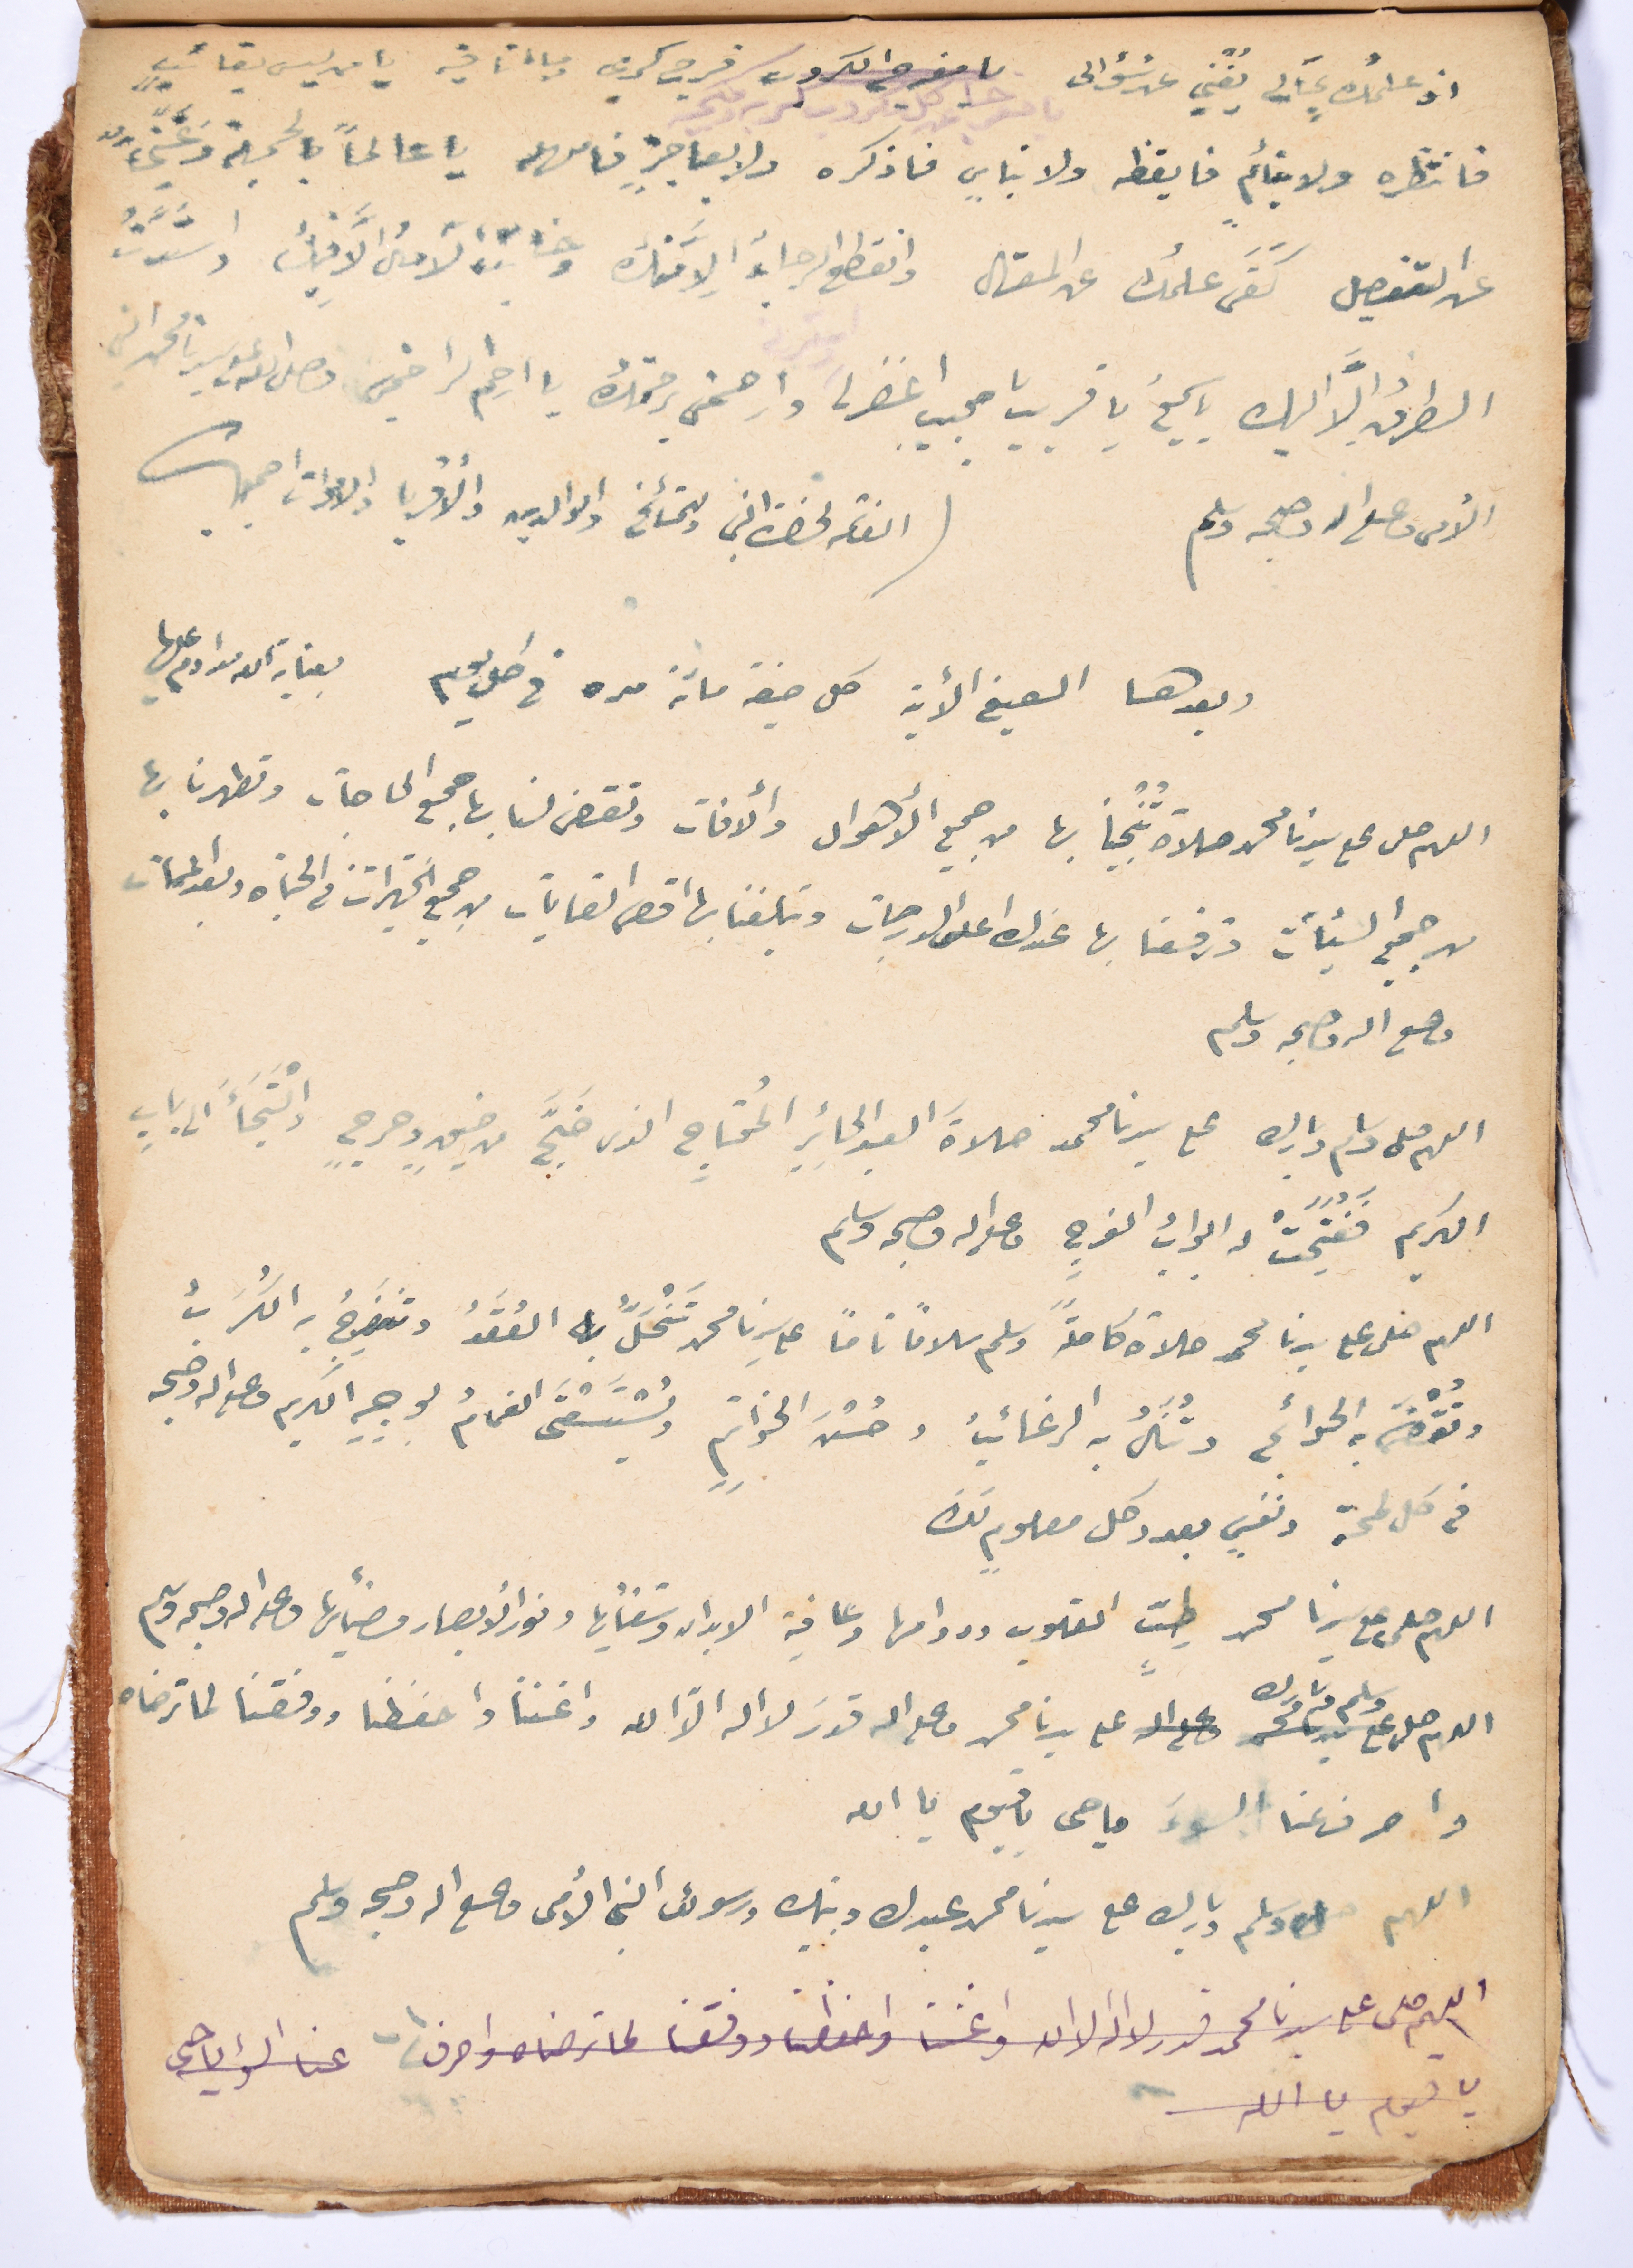 اذ علمُك بحالي يُغني عن سُؤالى يا مفرج الكروب فرج كربى وما انا فيه يا من ليس بغائبٍ
فانتظره ولا بنائمٍ فايقظه ولا بناسٍ فاذكره ولا بعاجزٍ فامهله يا عالماً بالجملة وغَنِيّاً
عن التفصيل كَفَى علمُك عن المقال وانقطع الرجاءُ الا منك وخابت الآمال الا فيك وانسدّت
الطرقُ الّا اليك يا سميع يا قريب يا مجيب اغفرلى وارحمنى برحمتك يا ارحم الراحمين وصلى الله على سيدنا محمد النبى
الأمى وعلى اله وصحبه وسلم
( الفاتحه لحضرة النبى وللمشائخ والوالدين والأقربا والاموات اجمعين
وبعدها الصيغ الأتية كل صيغة مائة مره فى كل يوم بعناية الله مداوم عليها
اللهم صلى على سيدنا محمد صلاة تُنْجِينا بها من جميع الأهوال والأفات وتقضى لنا بها جميع الحاجات وتطهرنا بها
من جميع السيئات وترفعنا بها عندك اعلى الدرجات وتبلغنا بها اقصى الغايات من جميع الخيرات فى الحياه وبعد الممات
وعلى اله وصحبه وسلم
اللهم صلى وسلم وبارك على سيدنا محمد صلاةَ العبد الحائرِ المُحتاجِ الذى ضَجَّ من ضيقٍ وحرجٍ والْتَجَأَ الى بابِ
الكريم فَفُتِحَتْ له ابوابُ الفرجِ وعلى اله وصحبه وسلم
اللهم صلى على سيدنا محمد صلاة كاملةً وسلم سلامًا تامًا على سيدنا محمد تَنْحَلُّ به العُقَدُ وتنفرجُ به الكُرَبُ
وتُقْضَى به الحوائج وتُنَالُ به الرغائبُ وحُسْنَ الخواتمِ ويُسْتَسْقَى الغمامُ بوجهِهِ الكريم وعلى اله وصحبه
فى كل لمحةٍ ونفسٍ بعدد كل معلومٍ لك
اللهم صلى على سيدنا محمد طبّ القلوب ودوائها وعافية الابدان وشفائها ونور الأبصار وضيائها وعلى اله وصحبه وسلم
وسلم وبارك
اللهم صلى على سيدنا محمد وعلى اله على سيدنا محمد وعلى اله قدرَ لا اله الّا الله واغننا واحفظنا ووفقنا لما ترضاه
واصرف عنا السوءَ يا حى يا قيوم يا الله
اللهم صلى وسلم وبارك على سيدنا محمد عبدك ونبيك ورسولك النبى الأمى وعلى اله وصحبه وسلم
اللهم صلى على سيدنا محمد قدر لا اله الا الله واغننا واحفظنا ووفقنا لما ترضاه واصرف عنا السوء يا حى
يا قيوم يا الله